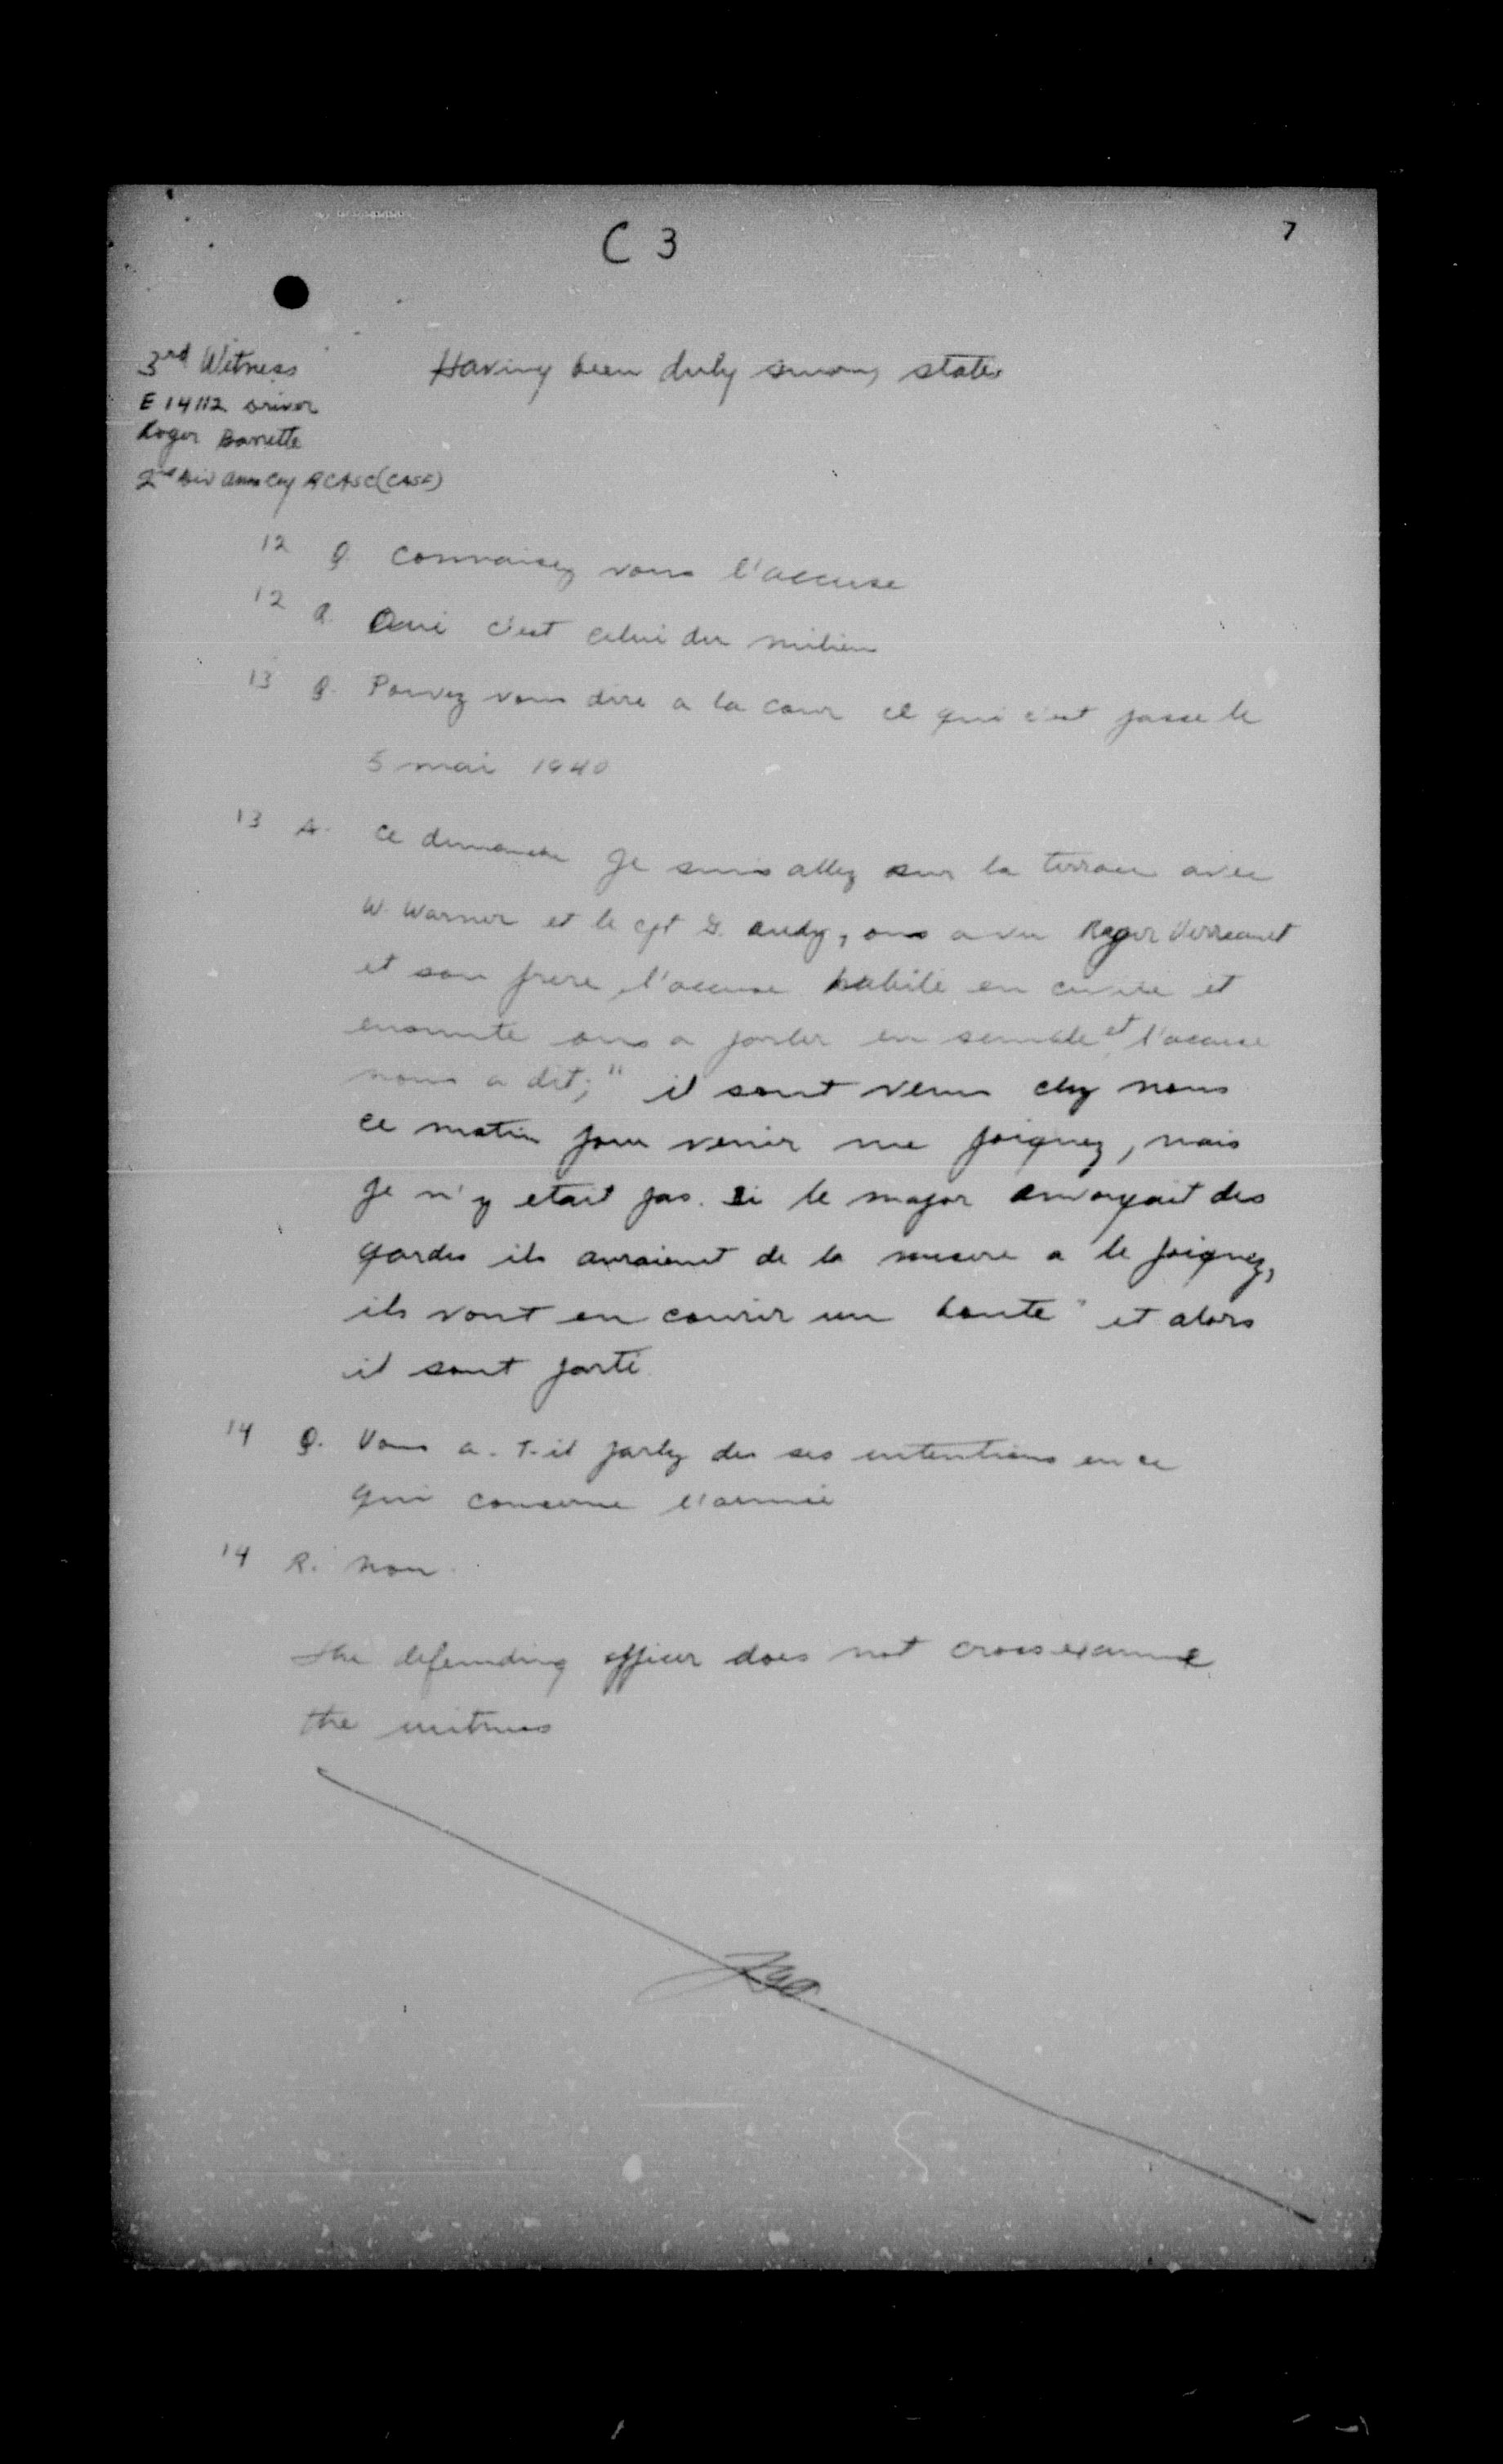 C 3
7
3rd Witness
E 14112 Driver
Roger Barrette
2nd Div Amm Coy RCASC (CASF)
Having been duly sworn, states
12 Q. Connaisez vous l'accuse
12 R. Oui c'est celui du milieu
13 Q. Pouvez vous dire a la cour ce qui c'est passe le
5 mai 1940
13 A. Ce dimanche je suis allez sur la terrace avec
W. Warner et le cpt G. Audy, ons a vu Roger Verreault
et son frere l'accuse habile en civile et
ensuite ons a parler en semble et l'accuse
nous a dit; " il sont venu chez nous
ce matin pour venir me poignez, mais
je n'y etait pas. Si le major envoyait des
gardes ils auraient de la misere a le poignez,
ils vont en courir un boute" et alors
il sont parti.
14 Q. Vous a-t-il parlez des ses intentions en ce
qui concerne l'armée
14 R. Non.
The defending officer does not cross examine
the witness